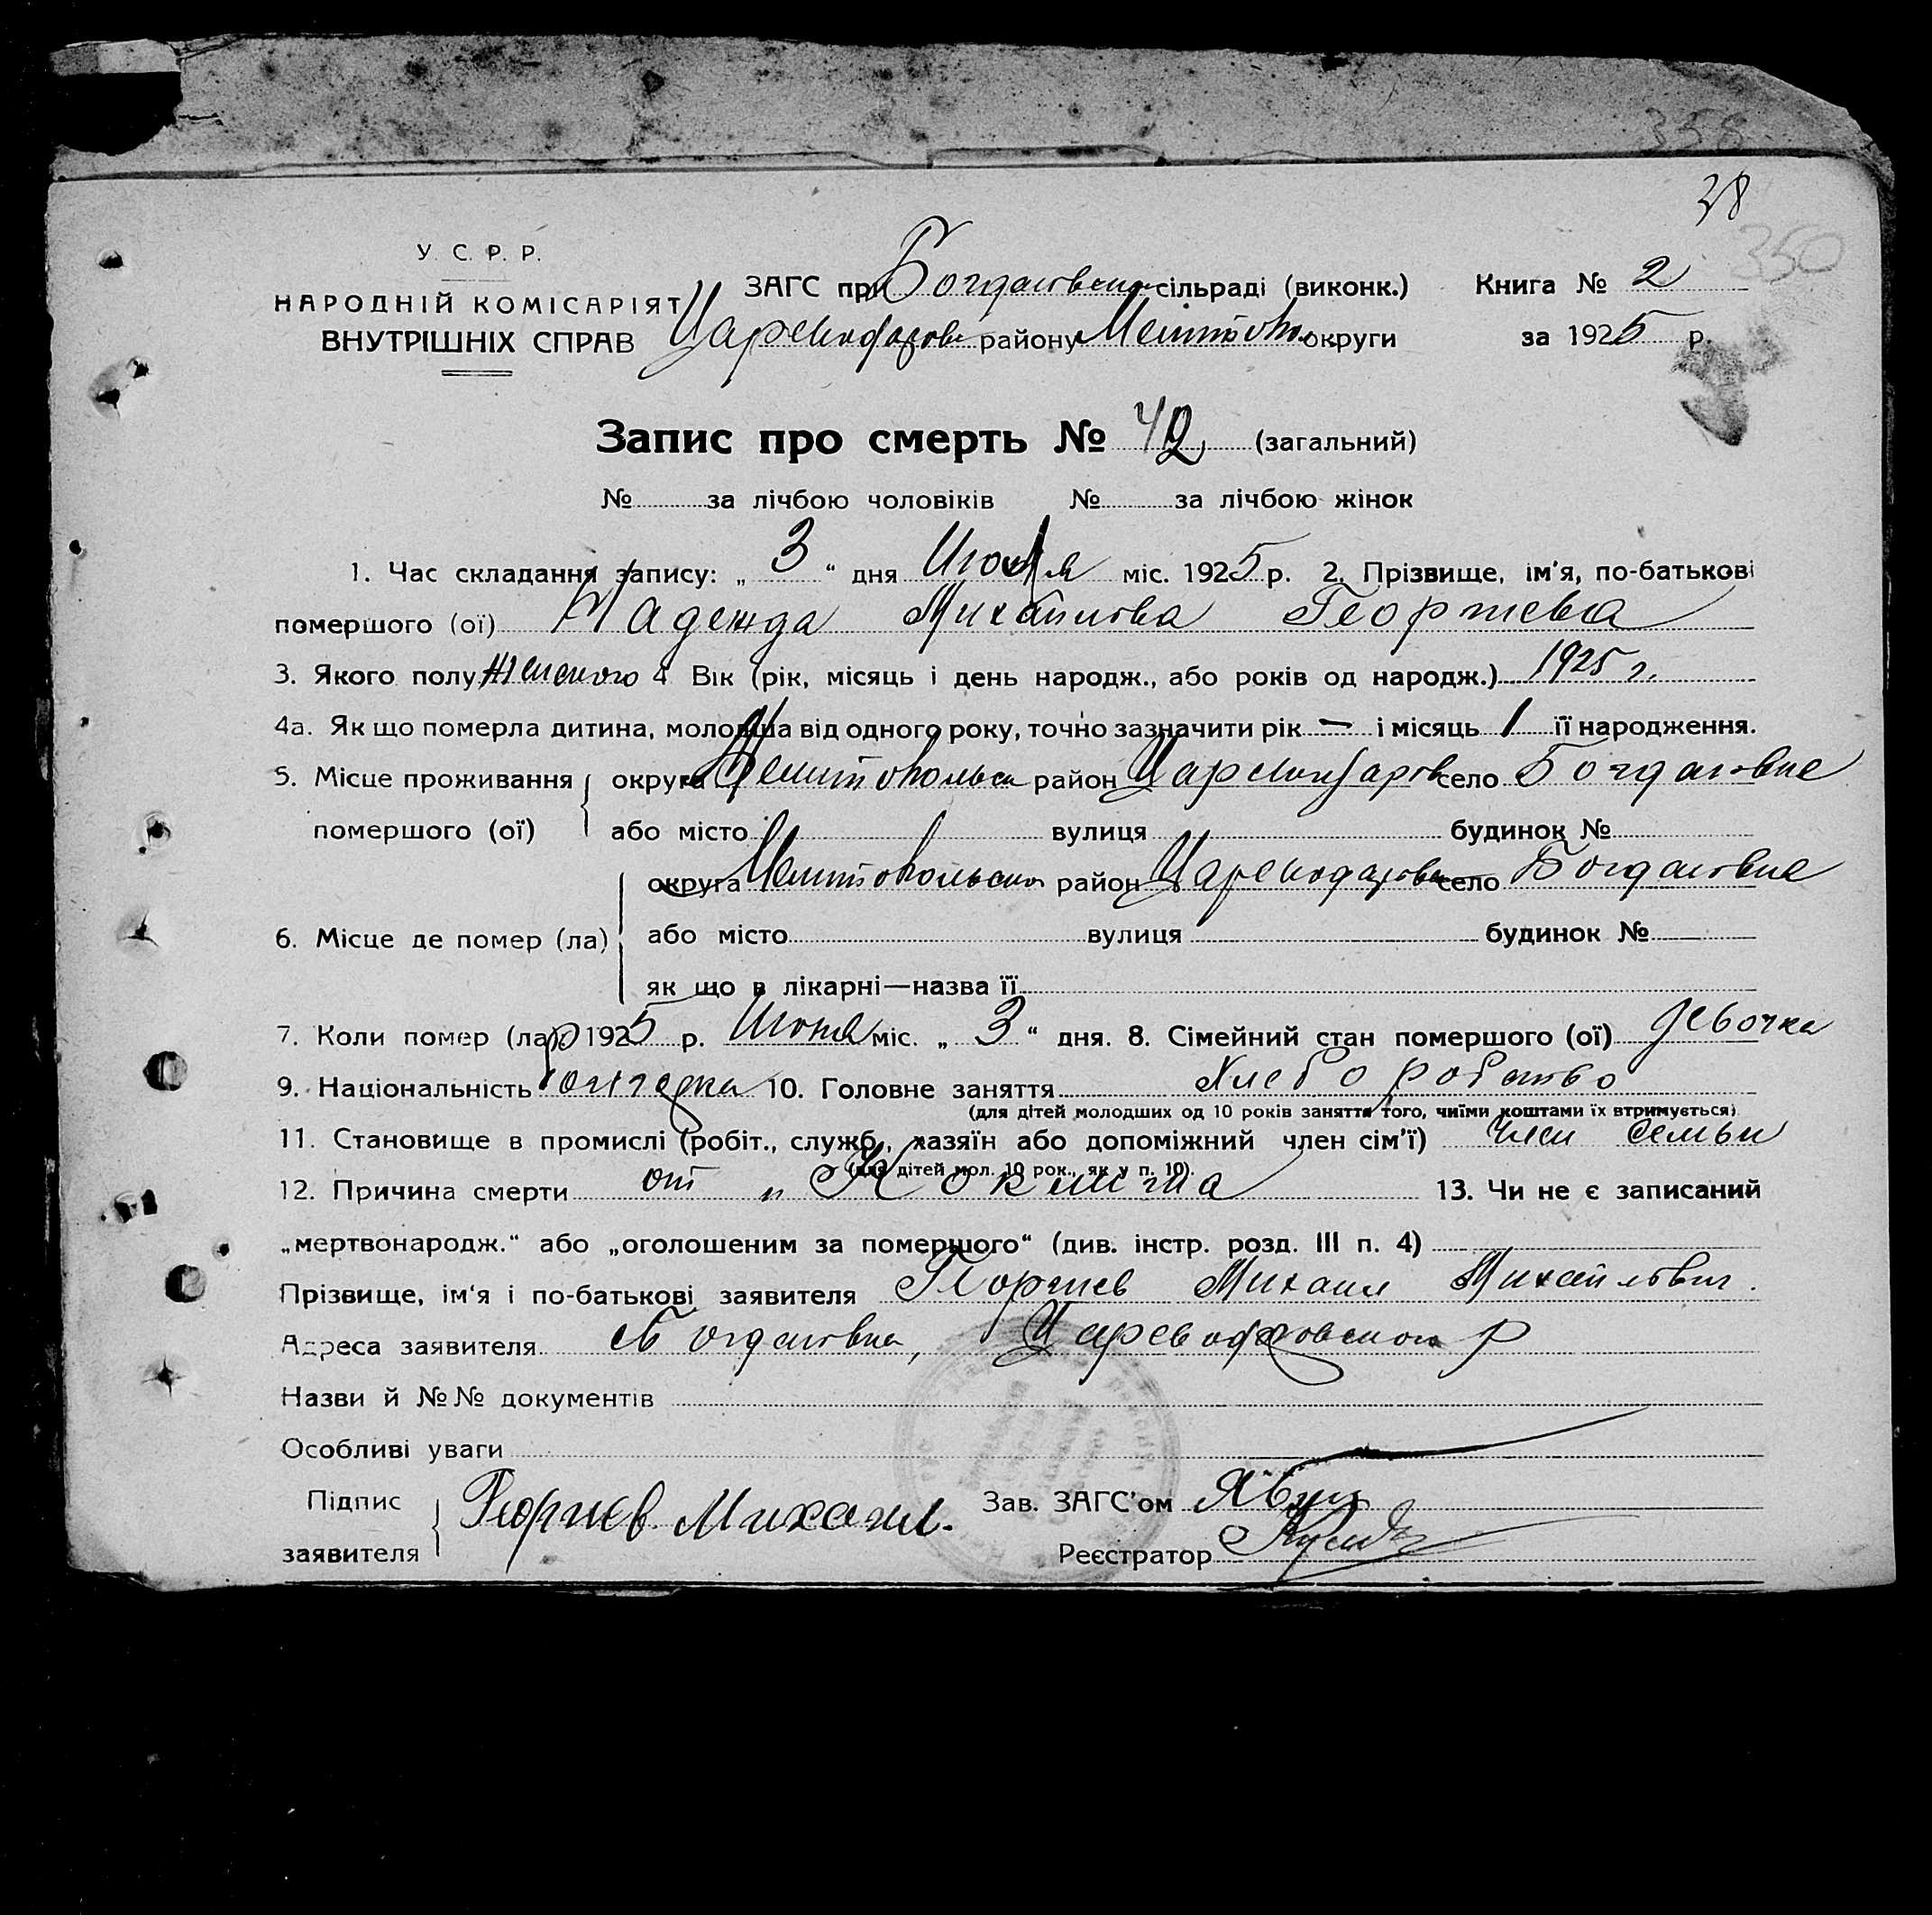 358
38
350
У. С. Р. Р.
НАРОДНІЙ КОМІСАРІЯТ
ВНУТРІШНІХ СПРАВ
ЗАГС при Богдановском сільраді (виконк.) Книга № 2
району округи за 1925 р.
Запис про смерть № 42 (загальний)
№ за лічбою чоловіків № за лічбою жінок
1. Час складання запису: „ 3 “ дня міс. 1925 р. 2. Прізвище, ім'я, по-батькові
помершого (ої) Надежда Михайлова Георгиева
3. Якого полу Женского 4 Вік (рік, місяць і день народж., або років од народж.) 1925 г.
4а. Як що померла дитина, молодша від одного року, точно зазначити рік — і місяць 1 її народження.
5. Місце проживання округа Мелитопольск район село Богдановка
помершого (ої) або місто вулиця будинок №
округа Мелитопольска район село Богдановка
6. Місце де помер (ла) або місто вулиця будинок №
як що в лікарні—назва її
7. Коли помер (ла) 1925 р. Июня міс. „ 3 “ дня. 8. Сімейний стан помершого (ої) девочка
9. Національність 10. Головне заняття Хлеборобство
(для дітей молодших од 10 років заняття того, чиїми коштами їх втримується)
11. Становище в промислі (робіт., служб., хазяїн або допоміжний член сім'ї) член семьи
(для дітей мол. 10 рок., як у п. 10).
12. Причина смерти от „ Коклюша 13. Чи не є записаний
„мертвонародж.“ або „оголошеним за помершого“ (див. інстр. розд. III п. 4)
Прізвище, ім'я і по-батькові заявителя Георгиев Михаил Михайлович.
Адреса заявителя с Богдановка, р
Назви й №№ документів
Особливі уваги
Підпис
заявителя Георгиев. Михаил.
Зав. ЗАГС'ом
Реєстратор